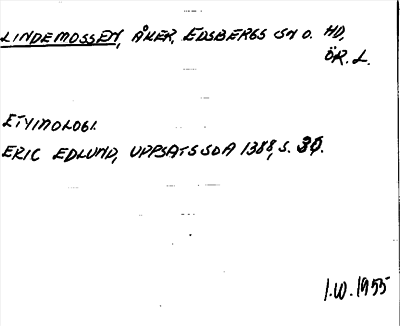 LINDEMOSSEN, ÅKER, EDSBERGS SN O. HD,
ÖR. L.
ETYMOLOGI.
ERIC EDLUND, UPPSATS SOA 1388, S. 30.
I.W. 1955